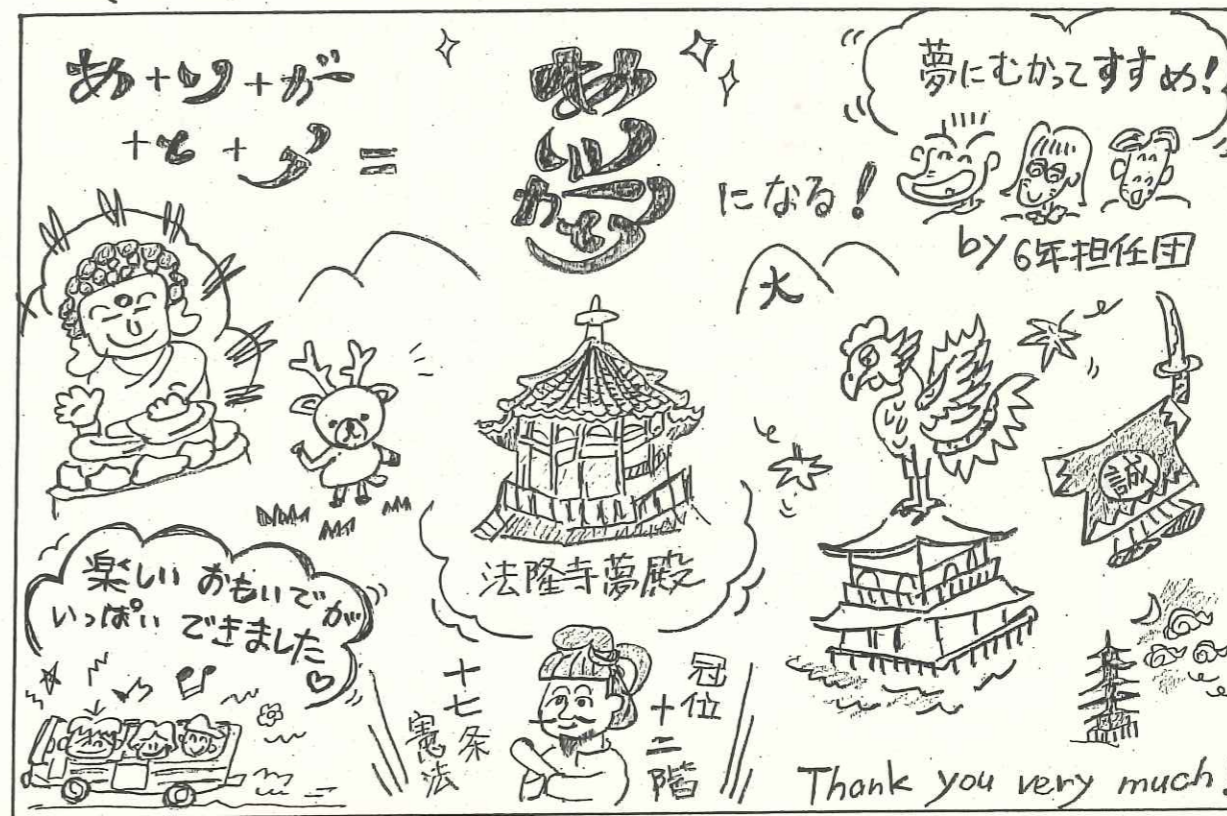 あ+り+が
+と+う=
夢
になる!
夢にむかってすすめ!
by 6年担任団
大
誠
法隆寺夢殿
楽しい おもいでが
いっぱい できました♡
十七条
憲法
冠位
十二階
Thank you very much!